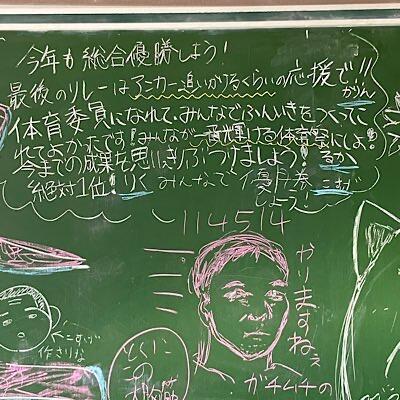 今年も総合優勝しよう!
最後のリレーはアンカー追いかけるくらいの応援で!!
がりん
体育委員になれて、みんなでふんいきをつくって
れてよかったです!みんなが一番光輝ける体育祭にしよ!
今までの成果を思いきりぶつけましょう! るか
絶対1位! りく みんなで優勝
しよう!
114514
やりますねぇ
ガチムチの
とくに
この
胸筋
作さりな